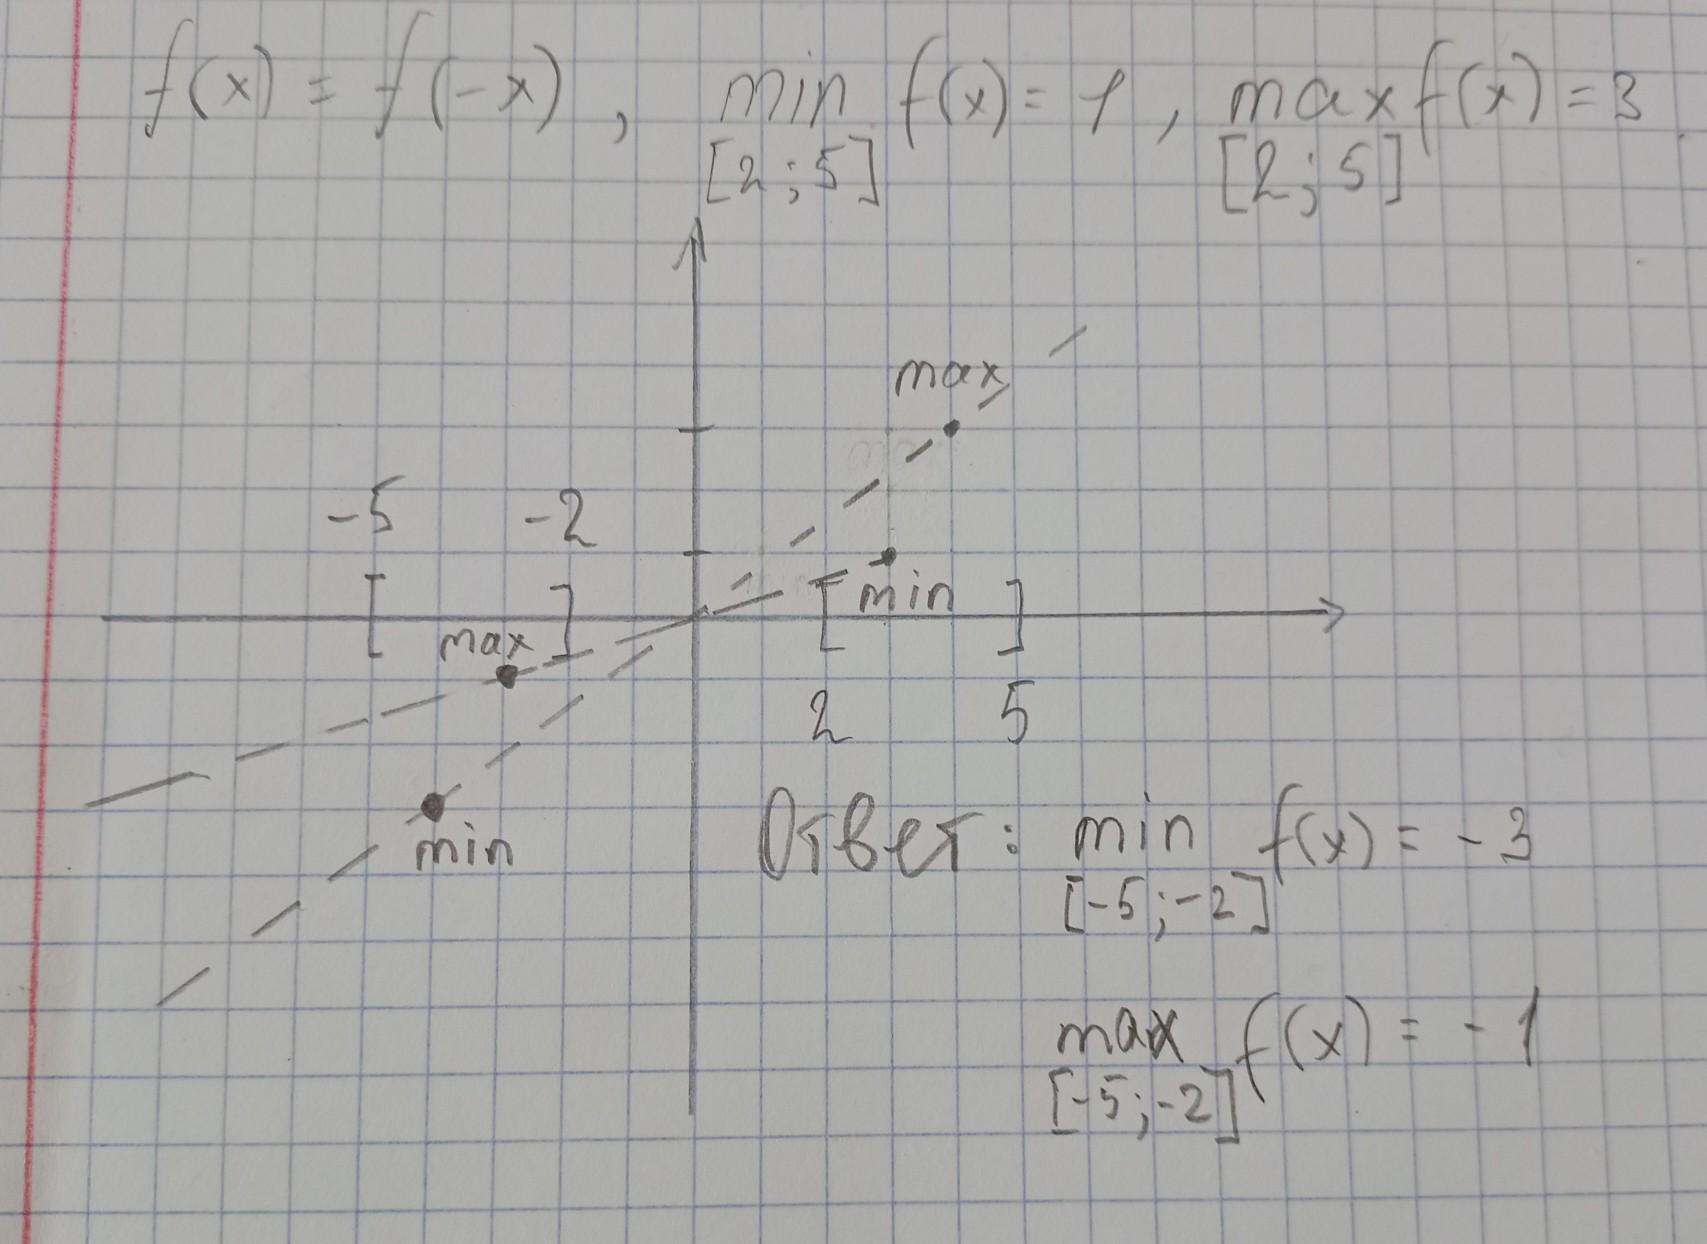 f(x) = f(-x), min f(x) = 1, max f(x) = 3
[2;5] [2;5]
max
-5 -2
min
max
2 5
min
Ответ: min f(x) = -3
[-5;-2]
max f(x) = -1
[-5;-2]